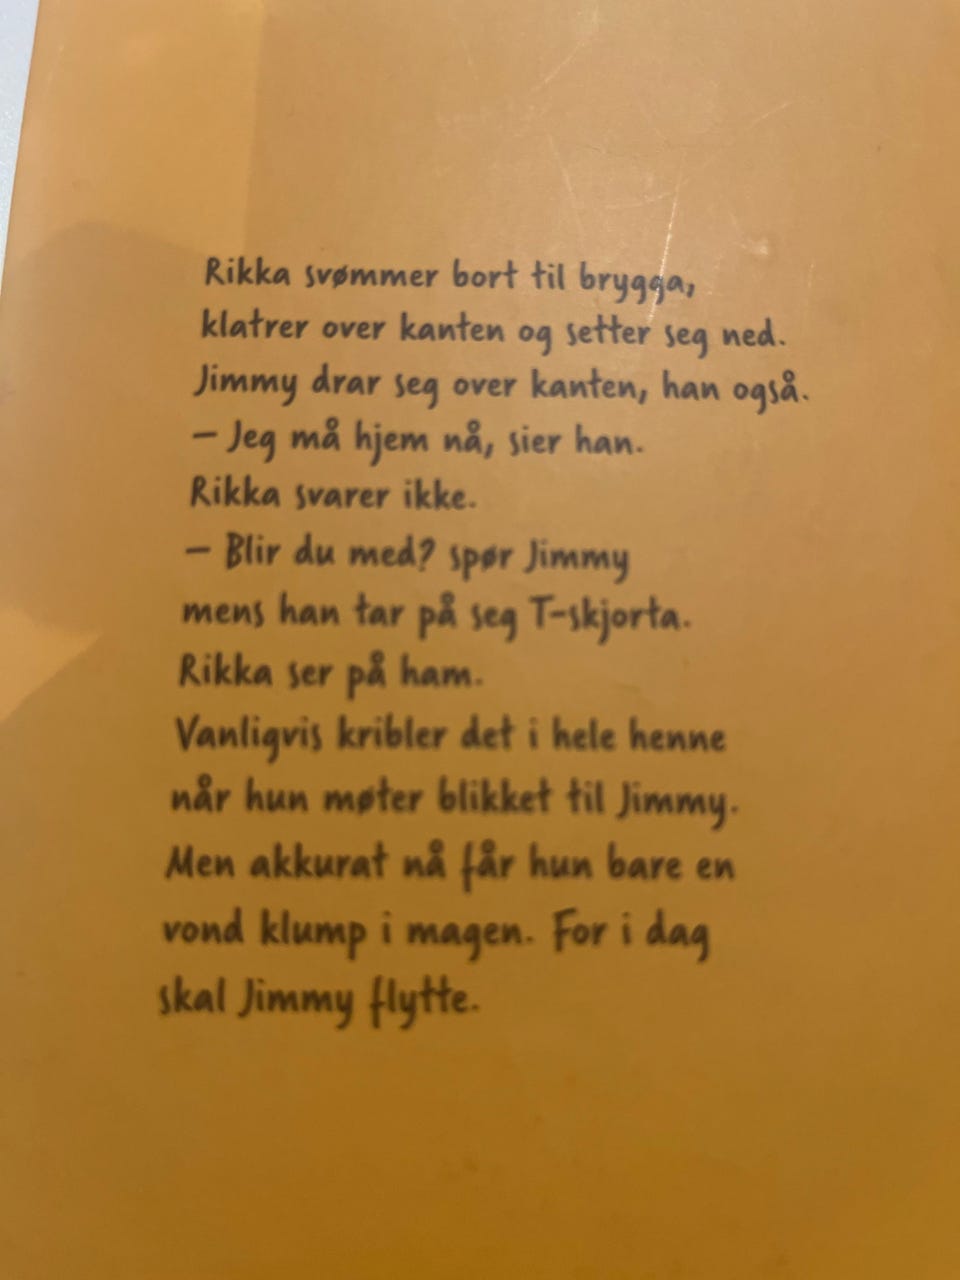 Rikka svømmer bort til brygga,
klatrer over kanten og setter seg ned.
Jimmy drar seg over kanten, han også.
– Jeg må hjem nå, sier han.
Rikka svarer ikke.
– Blir du med? spør Jimmy
mens han tar på seg T-skjorta.
Rikka ser på ham.
Vanligvis kribler det i hele henne
når hun møter blikket til Jimmy.
Men akkurat nå får hun bare en
vond klump i magen. For i dag
skal Jimmy flytte.